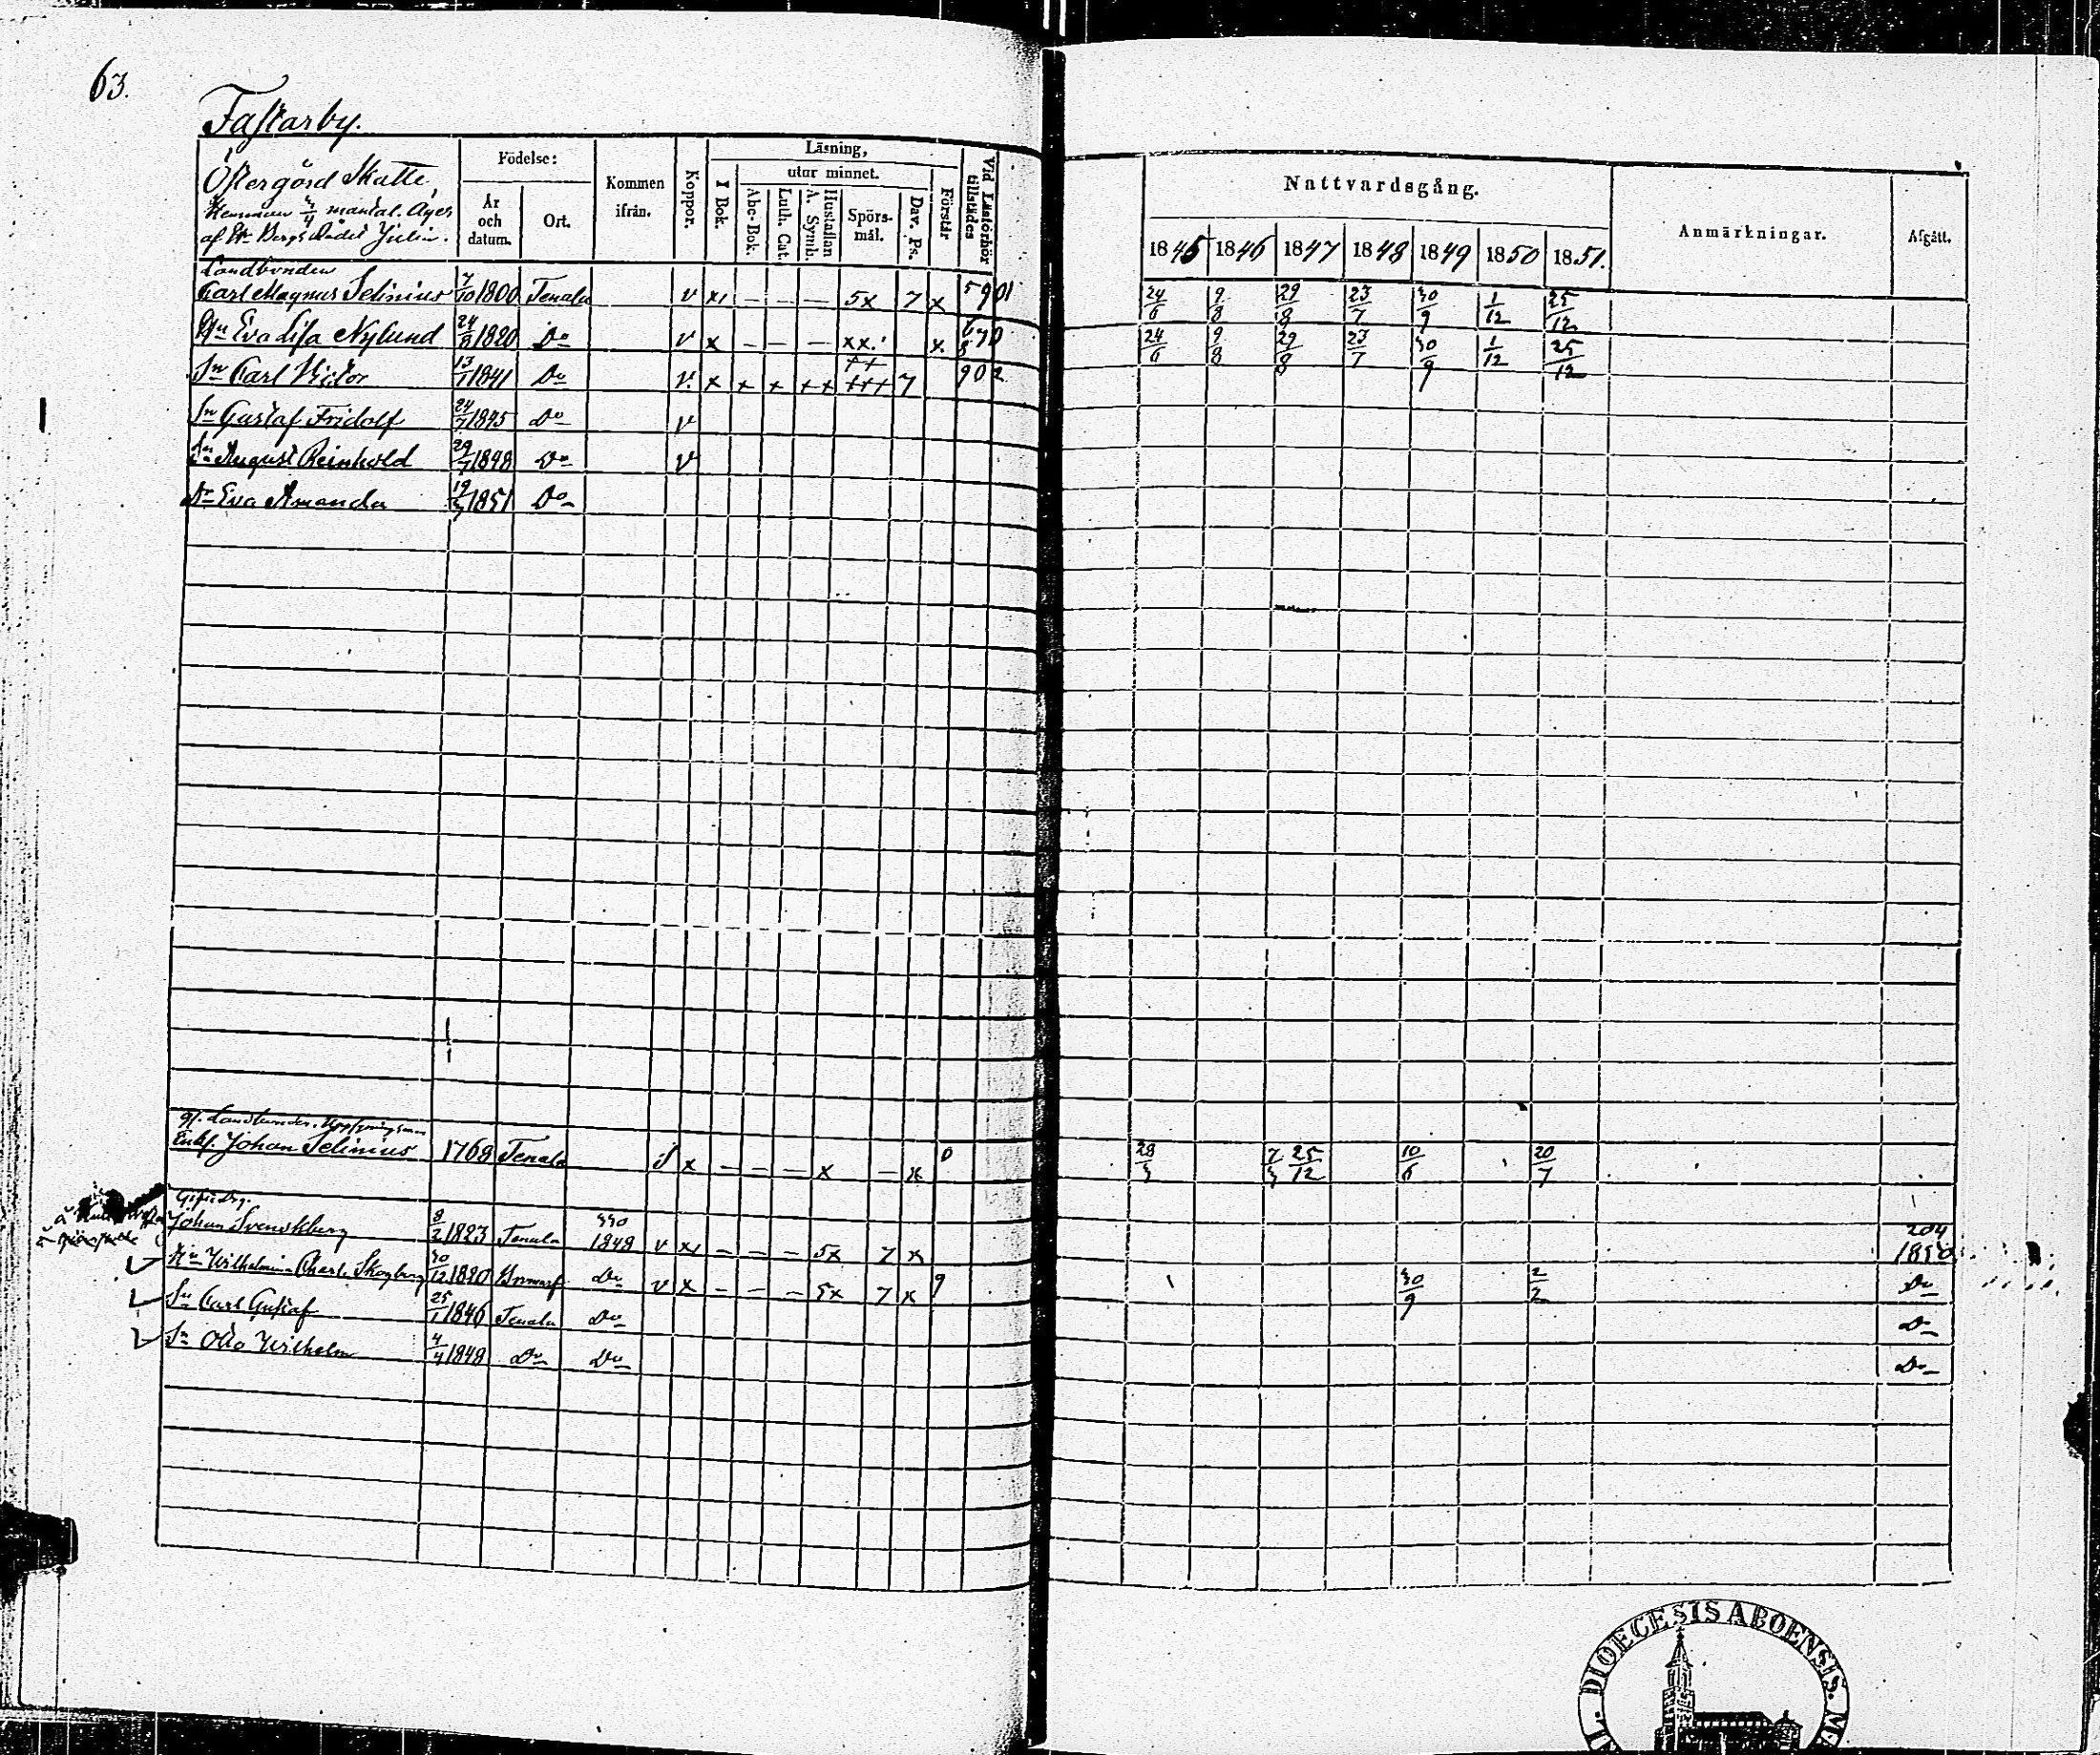 63.
Fastarby.
Östergård Skatte
Hemman mantal. Äges
af Hr Bergs Rådet Julin.
Födelse:
År och datum.
Ort.
Kommen ifrån.
Koppor.
Läsning,
I Bok.
utur minnet.
Abc-Bok.
Luth. Cat.
Hustaflan A. Symb.
Spörsmål.
Dav. Ps.
Förstår
Vid Läsförhör tillstädes
Nattvardsgång.
1845 1846 1847 1848 1849 1850 1851.
Anmärkningar.
Afgått.
Landbonden
Carl Magnus Selinius 7/10 1800 Tenala v x1 — — — 5x 7 x 24/6 9/8 29/8 23/7 30/9 1/12 25/12
Hu Eva Lisa Nylund 24/8 1820 Do v x — — — xx x 24/6 9/8 29/8 23/7 30/9 1/12 25/12
Sn Carl Victor 13/1 1841 Do v x + + ++ +++ 7
Sn Gustaf Fridolf 24/7 1845 Do v
Sn August Reinhold 29/7 1848 Do v
Dr Eva Amanda 1851 Do
Enkl. Johan Selinius 1768 Tenala x — — — x — x 0 10/6 20/7
Johan Svenskberg 8/2 1823 Tenala 1848 v x1 — — — 5x 7 x 204 1850
Hu Wilhelmina Charl. Skogberg 30/12 1820 Do v x — — — 5x 7 x 9 30/9 2/2 Do
Sn Carl Gustaf 25/1 1846 Tenala Do Do
Sn Otto Wilhelm 4/4 1848 Do Do Do
DIOECESIS ABOENSIS. M